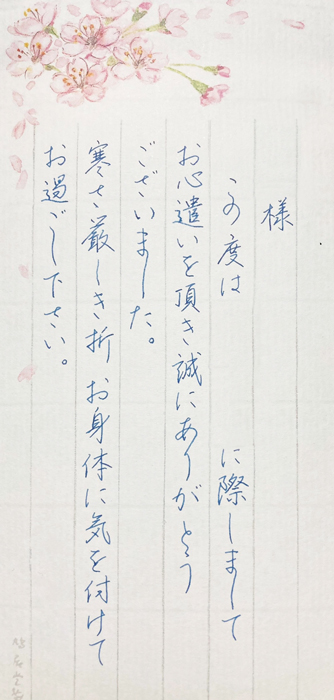 様
この度は　　　　に際しまして
お心遣いを頂き誠にありがとう
ございました。
寒さ厳しき折　お身体に気を付けて
お過ごし下さい。